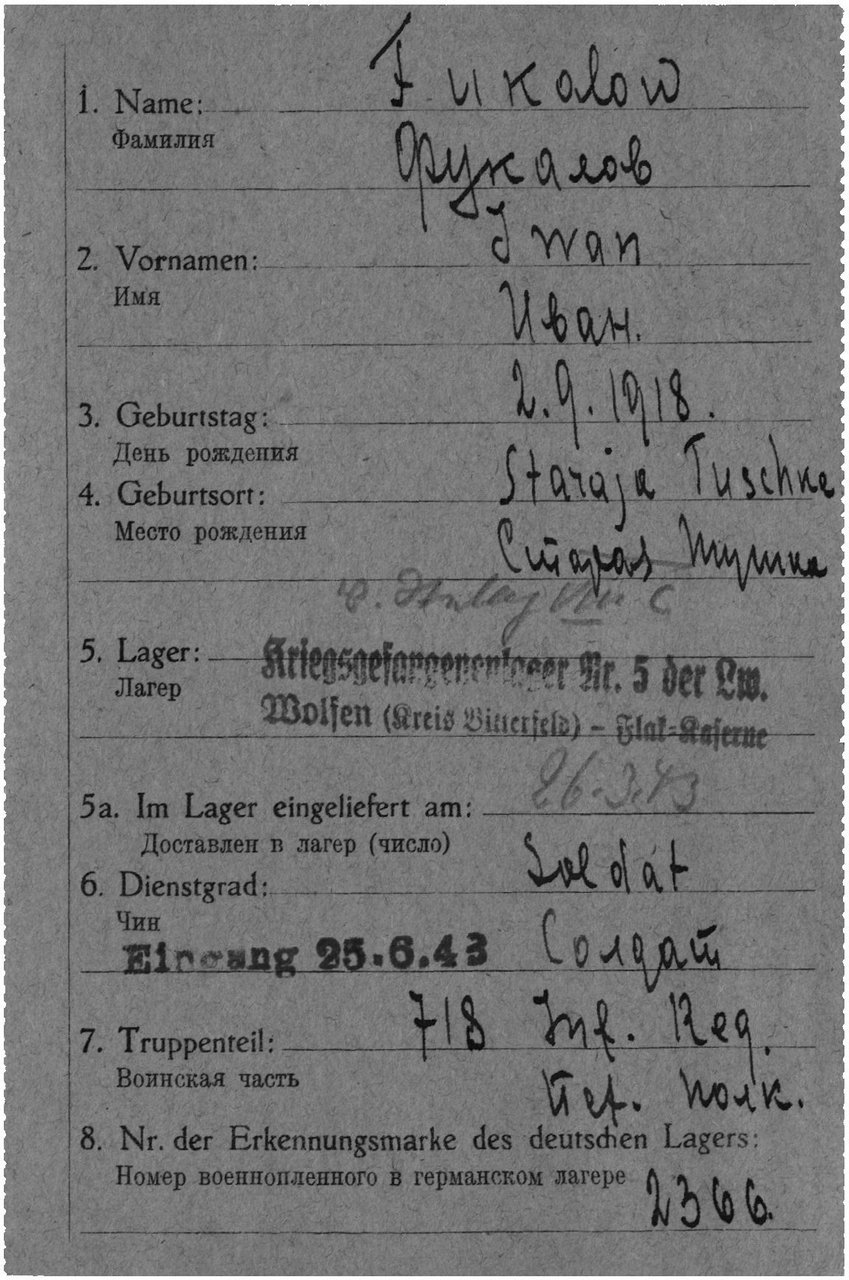 1. Name: Fukalow
Фамилия Фукалов
2. Vornamen: Iwan
Имя Иван.
3. Geburtstag: 2.9.1918.
День рождения
4. Geburtsort: Staraja Tuschka
Место рождения Старая Тушка
Stalag C
5. Lager: Kriegsgefangenenlager Nr. 5 der Lw.
Лагер Wolfen (Kreis Bitterfeld) – Flak-Kaserne
5a. Im Lager eingeliefert am: 26.3.43
Доставлен в лагер (число)
6. Dienstgrad: Soldat
Чин
Eingang 25.6.43 Солдат
7. Truppenteil: 718 Inf. Reg.
Воинская часть полк.
8. Nr. der Erkennungsmarke des deutschen Lagers:
Номер военнопленного в германском лагере 2366.